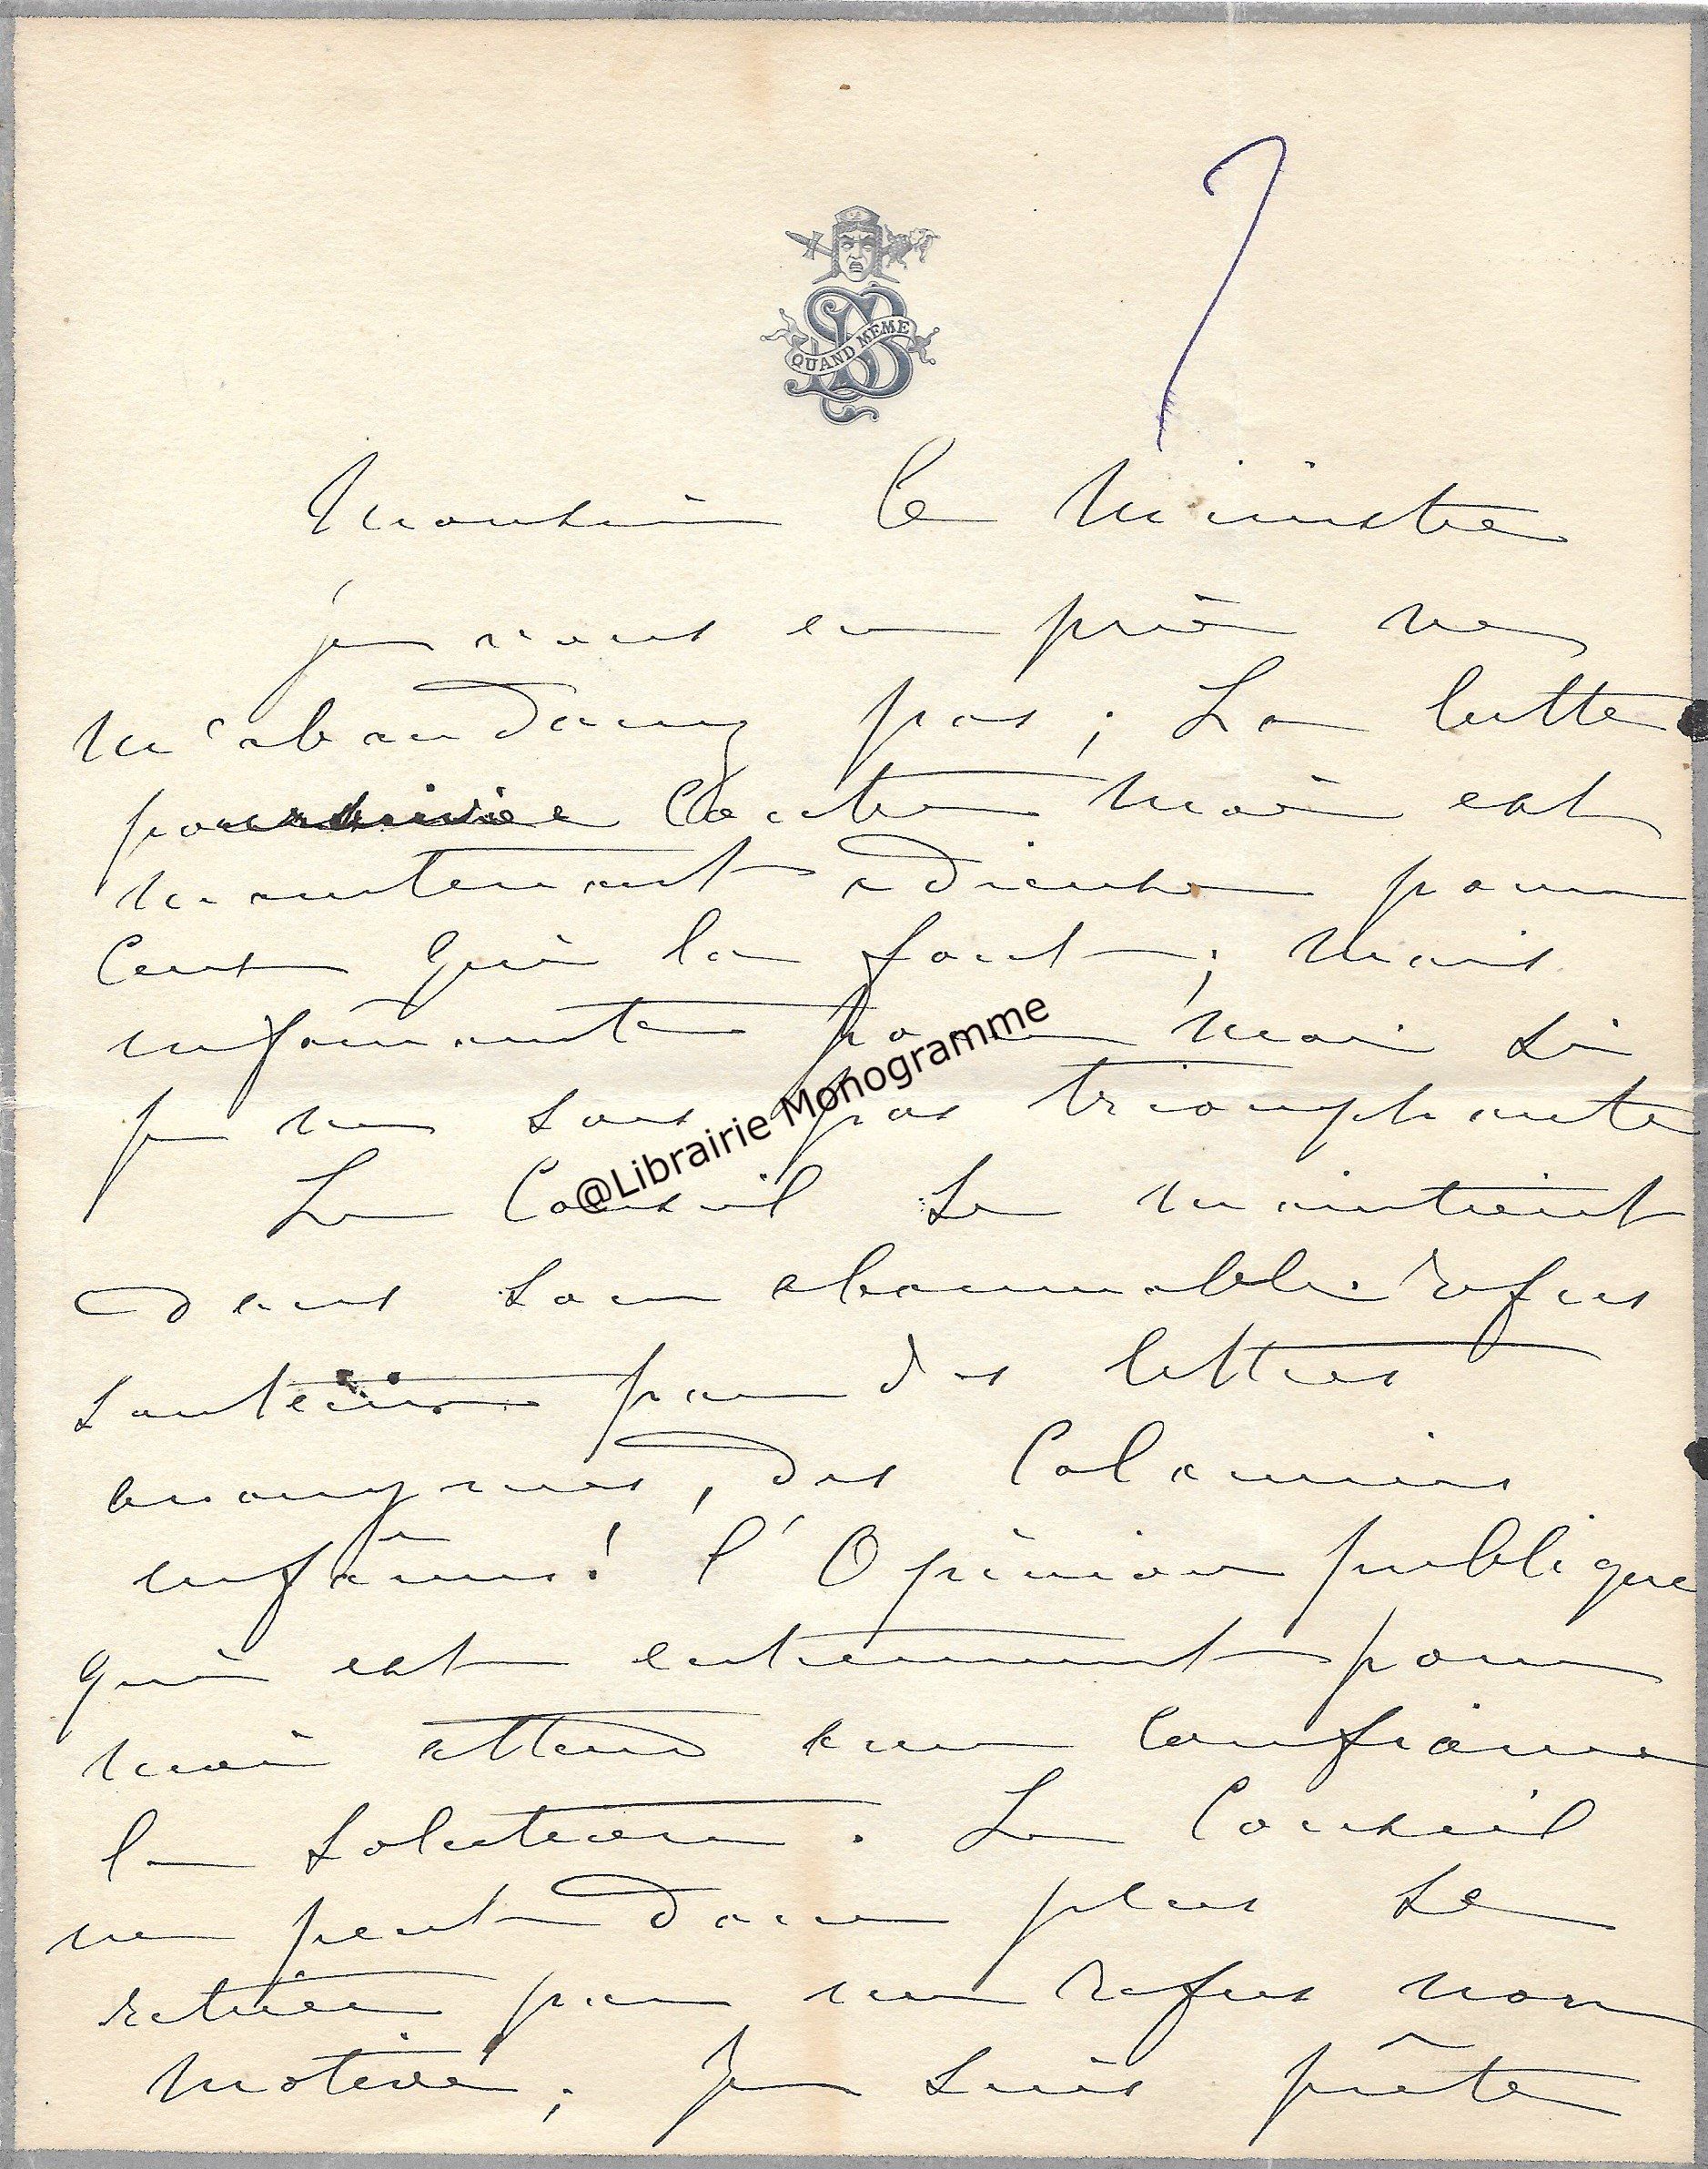 QUAND MEME
Monsieur le Ministre
je vous en prie ne
m'abandonnez pas ; La lutte
poursuivie contre moi est
maintenant odieuse pour
ceux qui la font ; mais
infamante pour moi si
je ne sors pas triomphante
Le Conseil se maintient
dans son abominable refus
soutenu par des lettres
anonymes, des calomnies
infâmes ! l'Opinion publique
qui est entièrement pour
moi attend avec confiance
la solution . Le Conseil
ne peut donc plus se
retirer par un refus non
motivé ; Je suis prête
@Librairie Monogramme